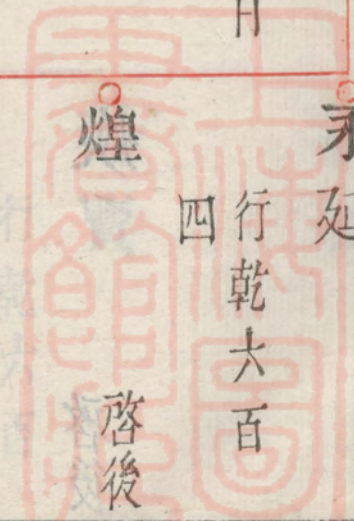 永延
行乾六百
四
煌
啓後